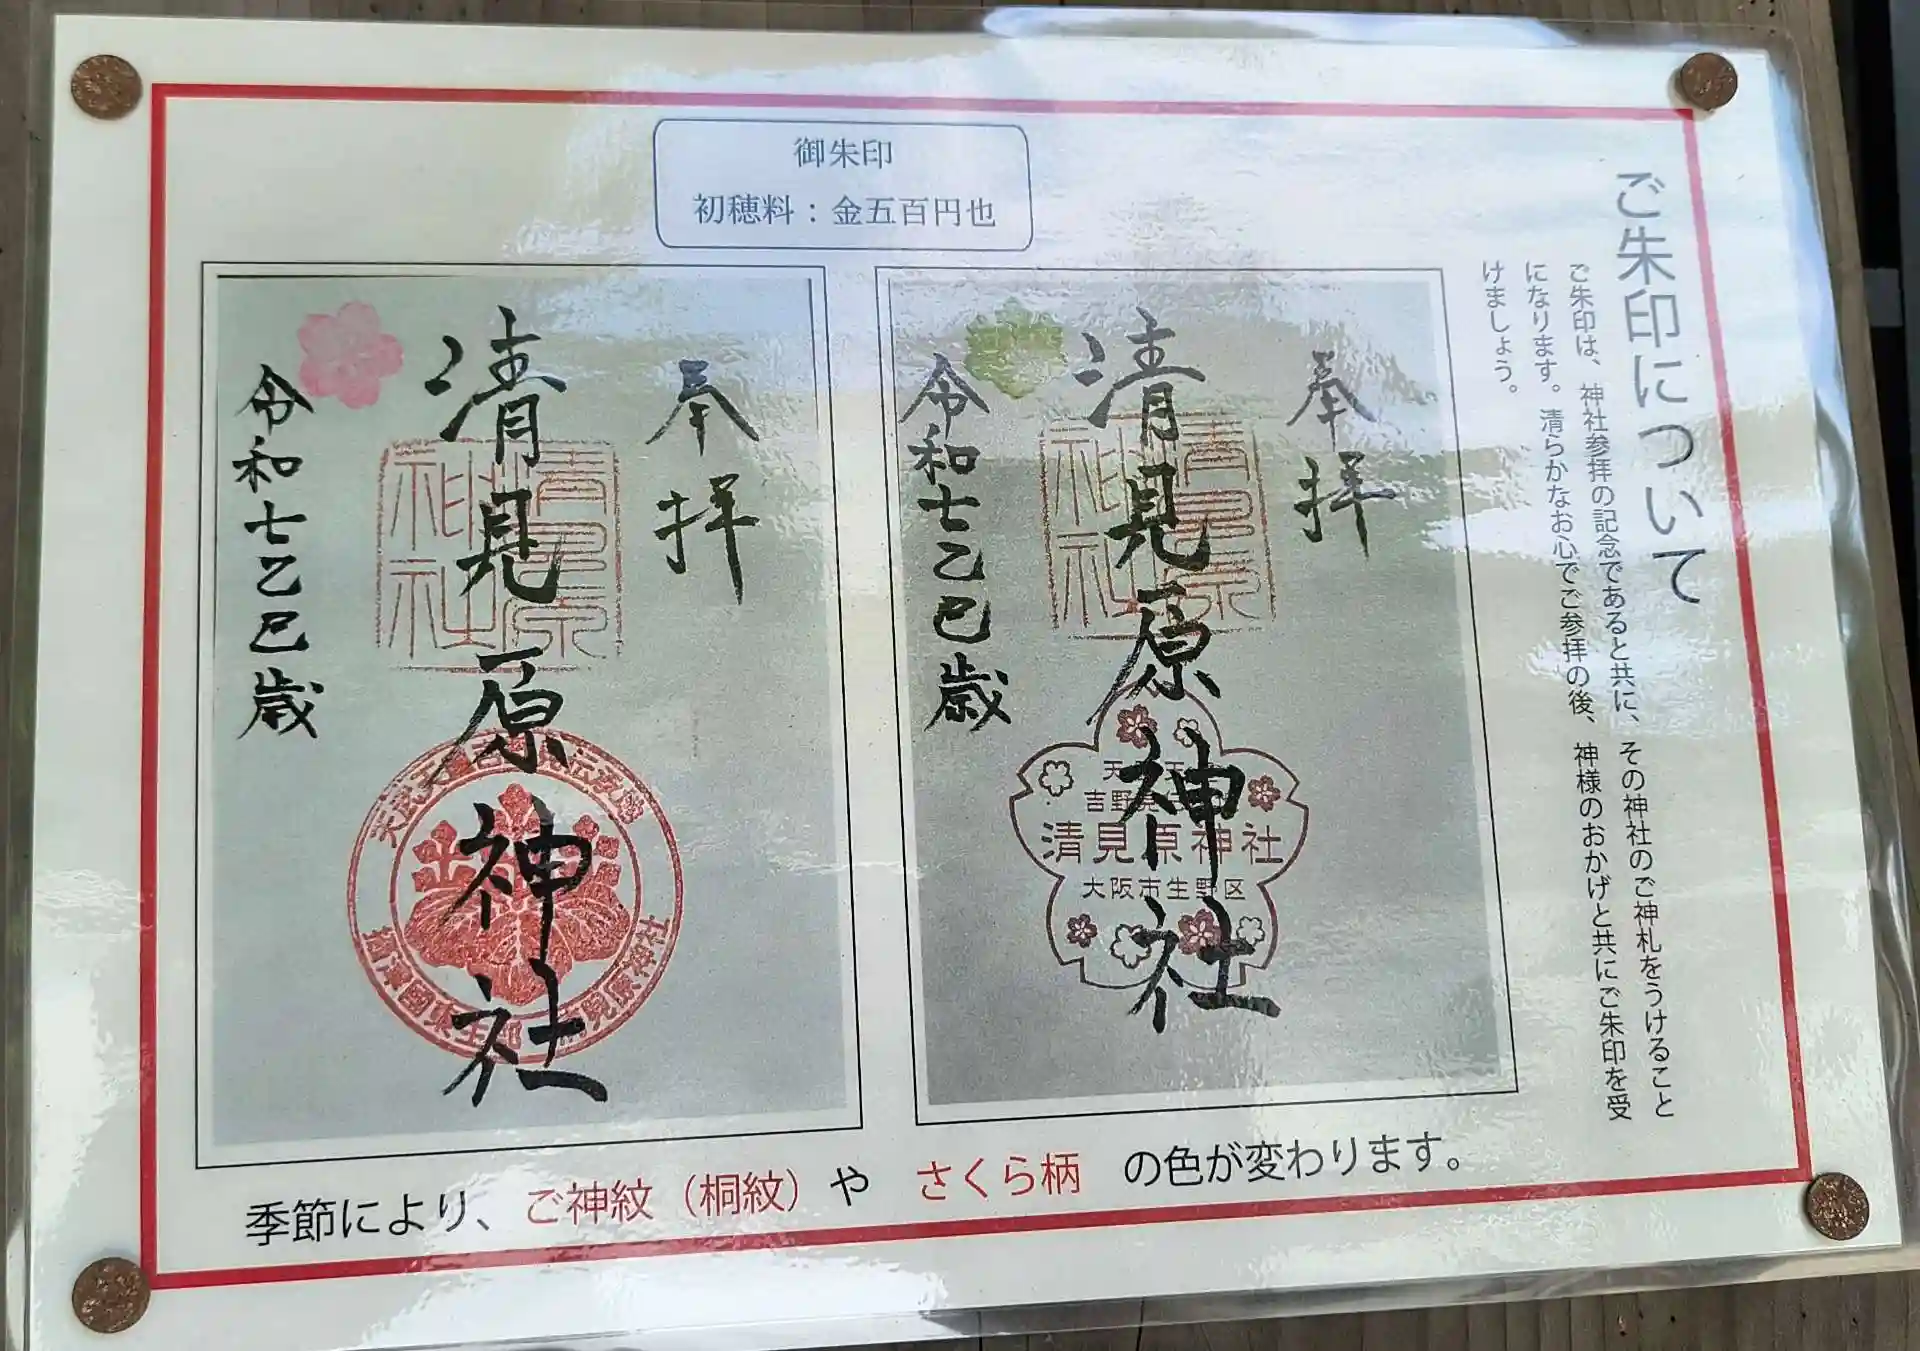 ご朱印について
ご朱印は、神社参拝の記念であると共に、その神社のご神札をうけること
になります。清らかなお心でご参拝の後、神様のおかげと共にご朱印を受
けましょう。
御朱印
初穂料：金五百円也
奉拝
清見原神社
清見原神社
天
吉野
清見原神社
大阪市生野区
令和七乙巳歳
奉拝
清見原神社
清見原神社
令和七乙巳歳
季節により、ご神紋（桐紋）や さくら柄 の色が変わります。